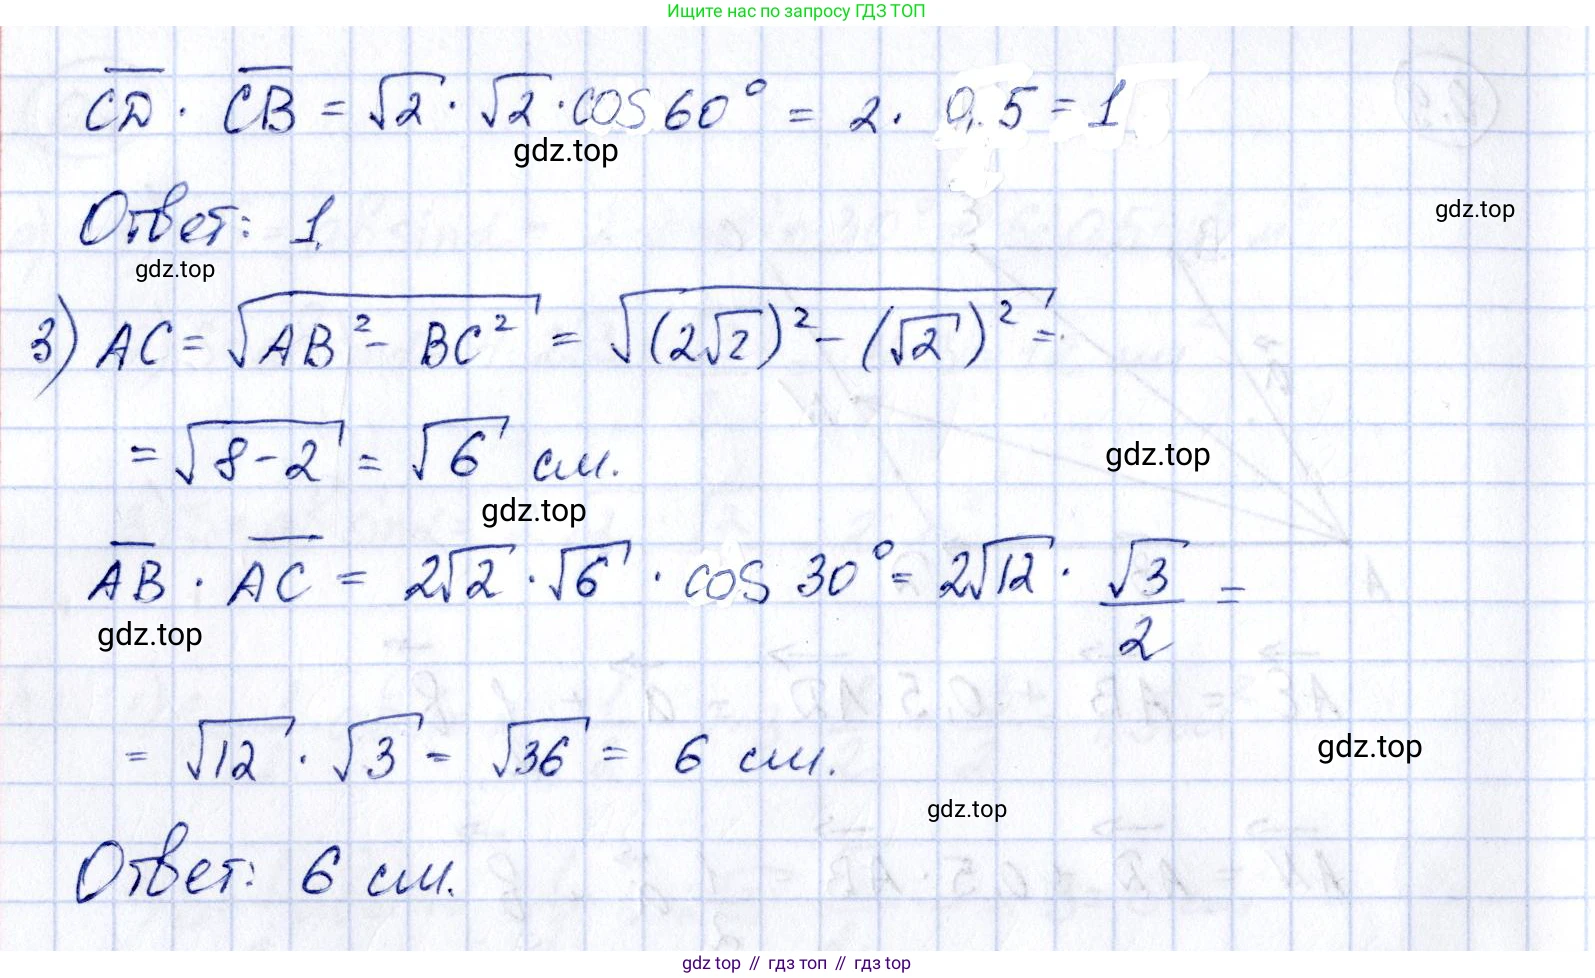 Ищите нас по запросу ГДЗ ТОП
CD · CB = √2 · √2 · cos 60° = 2 · 0,5 = 1
gdz.top
Ответ: 1.
gdz.top
gdz.top
3) AC = √(AB² - BC²) = √((2√2)² - (√2)²) =
= √(8-2) = √6 см.
gdz.top
gdz.top
AB · AC = 2√2 · √6 · cos 30° = 2√12 · √3/2 =
gdz.top
= √12 · √3 = √36 = 6 см.
gdz.top
gdz.top
Ответ: 6 см.
gdz top // гдз топ // гдз top